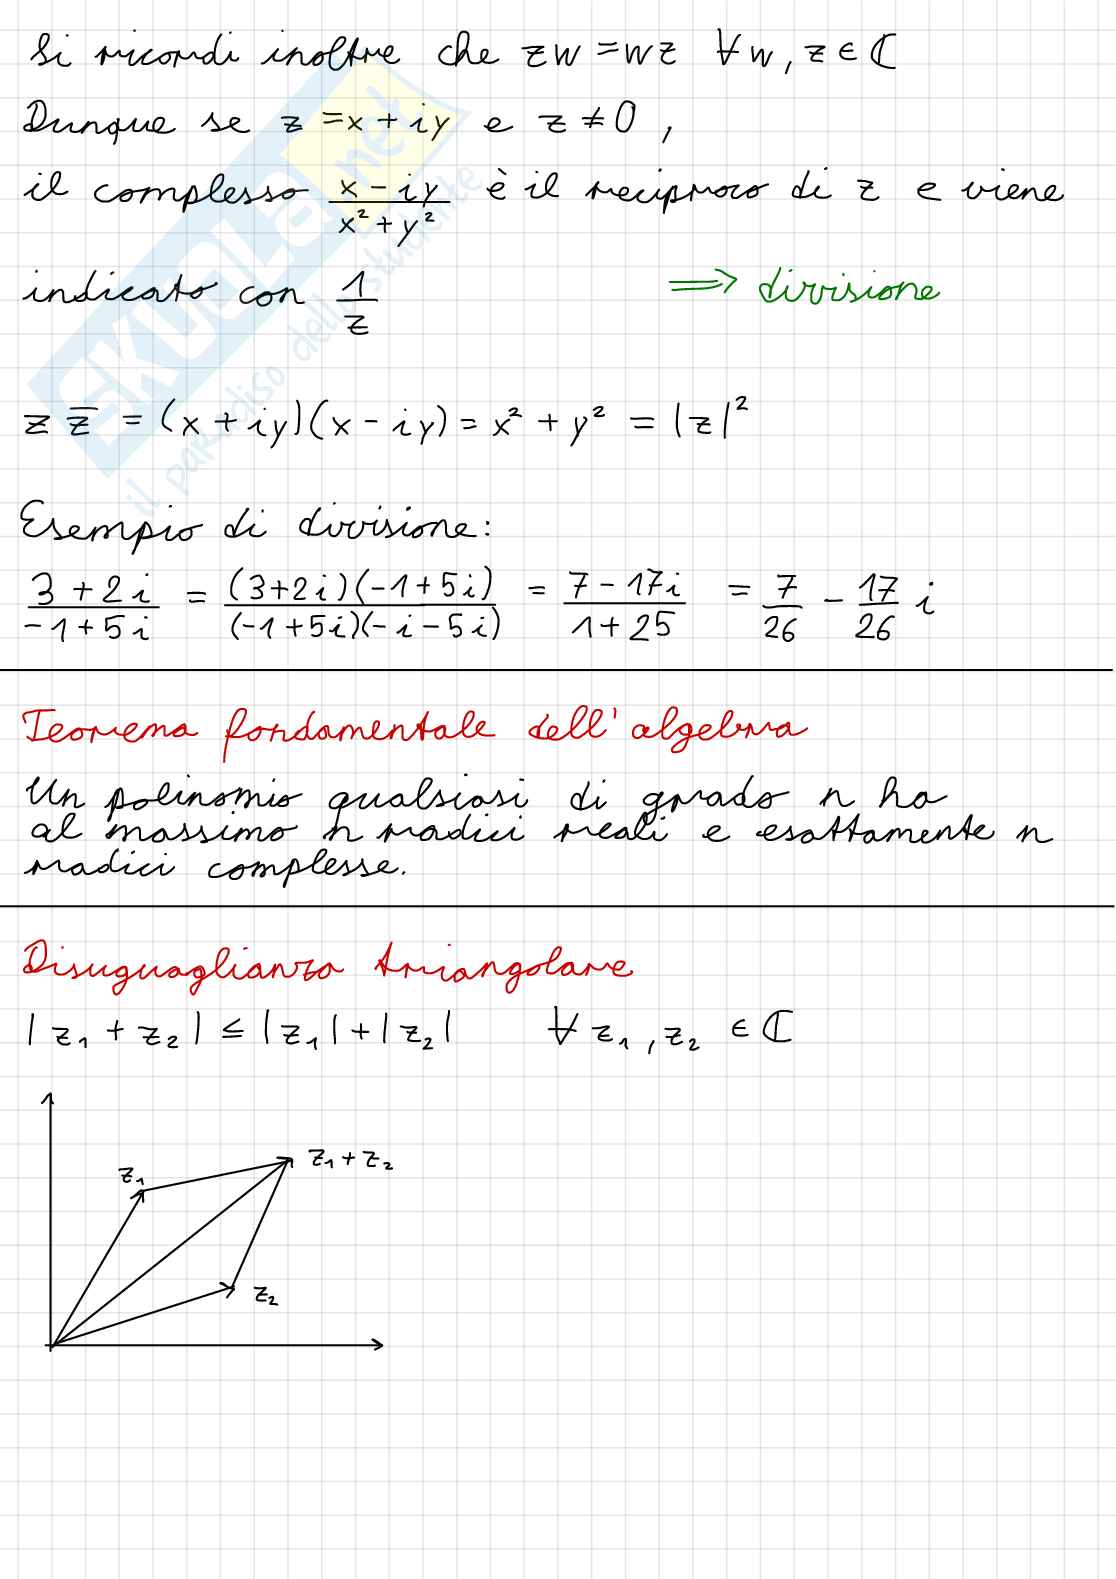 Si ricordi inoltre che zw = wz ∀w, z ∈ ℂ
Dunque se z = x + iy e z ≠ 0,
il complesso (x - iy)/(x² + y²) è il reciproco di z e viene
indicato con 1/z ⟹ divisione
z z̅ = (x + iy)(x - iy) = x² + y² = |z|²
Esempio di divisione:
(3 + 2i)/(-1 + 5i) = ((3+2i)(-1+5i))/((-1+5i)(-i-5i)) = (7 - 17i)/(1 + 25) = 7/26 - 17/26 i
Teorema fondamentale dell'algebra
Un polinomio qualsiasi di grado n ha
al massimo n radici reali e esattamente n
radici complesse.
Disuguaglianza triangolare
|z₁ + z₂| ≤ |z₁| + |z₂| ∀ z₁, z₂ ∈ ℂ
z₁
z₁ + z₂
z₂
SKUOLA.net
il paradiso dello studente